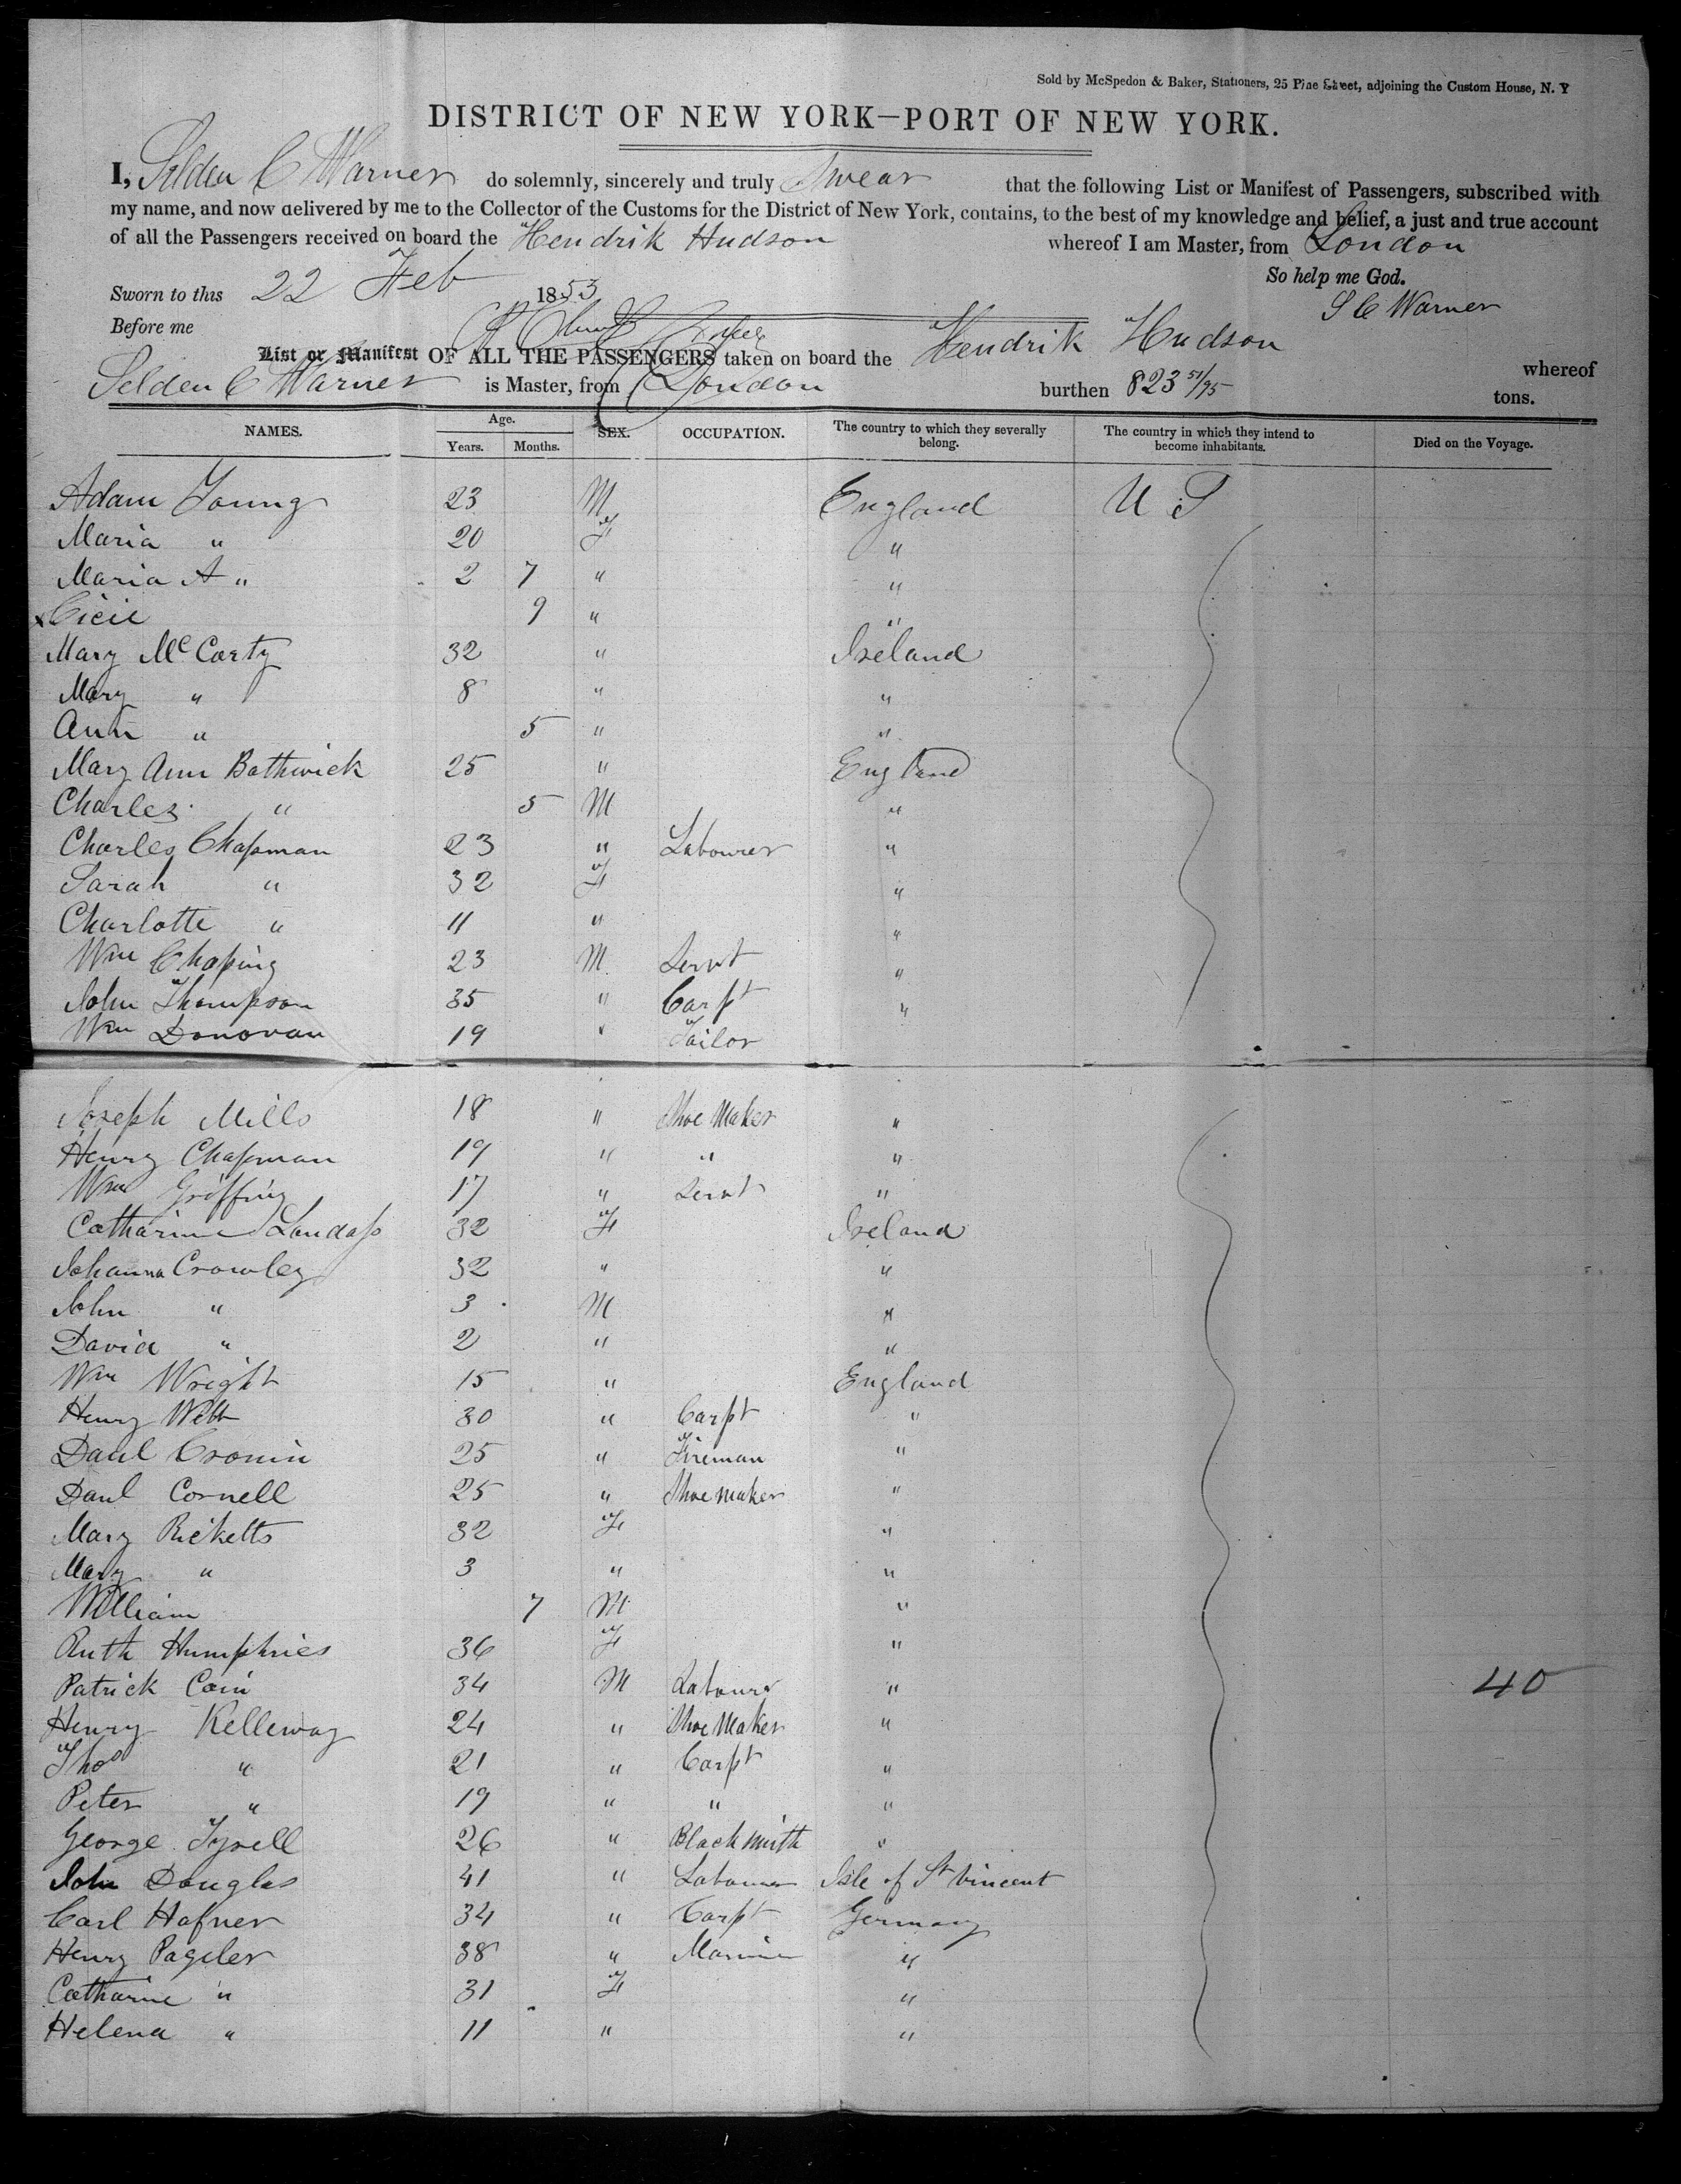 Sold by McSpedon & Baker, Stationers, 25 Pine Street, adjoining the Custom House, N. Y
DISTRICT OF NEW YORK—PORT OF NEW YORK.
I, Selden C Warner do solemnly, sincerely and truly Swear that the following List or Manifest of Passengers, subscribed with
my name, and now delivered by me to the Collector of the Customs for the District of New York, contains, to the best of my knowledge and belief, a just and true account
of all the Passengers received on board the Hendrik Hudson whereof I am Master, from London
So help me God.
Sworn to this 22 Feb 1853
S C Warner
Before me
List or Manifest OF ALL THE PASSENGERS taken on board the Hendrik Hudson whereof
Selden C Warner is Master, from London burthen 823 51/95 tons.
NAMES. Age. Years. Months. SEX. OCCUPATION. The country to which they severally belong. The country in which they intend to become inhabitants. Died on the Voyage.
Adam Young 23 M England U S
Maria " 20 F "
Maria A " 2 7 " "
x 9 " "
Mary McCarty 32 " Ireland
Mary " 8 " "
Ann " 5 " "
Mary Ann Bathwick 25 " England
Charles " 5 M "
Charles Chapman 23 " Labourer "
Sarah " 32 F "
Charlotte " 11 " "
Wm Chaping 23 M Servt "
John Thompson 35 " Carpt "
Wm Donovan 19 " Tailor
Joseph Mills 18 " Shoe Maker "
Henry Chapman 19 " " "
Wm Griffing 17 " Servt "
Catharine 32 F Ireland
Johanna Crowley 32 " "
John " 3 M "
David " 2 " "
Wm Wright 15 " England
Henry Webb 30 " Carpt "
Danl Cronin 25 " Fireman "
Danl Cornell 25 " Shoemaker "
Mary Ricketts 32 F "
Mary " 3 " "
William 7 M "
Ruth Humphries 36 F "
Patrick Cain 34 M Labourer " 40
Henry Kelleway 24 " Shoe Maker "
Thos " 21 " Carpt "
Peter " 19 " " "
George Tyrell 26 " Blacksmith "
John Douglas 41 " Labourer Isle of St Vincent
Carl Hafner 34 " Carpt Germany
Henry Pageler 38 " Mariner "
Catharine " 31 F "
Helena " 11 " "